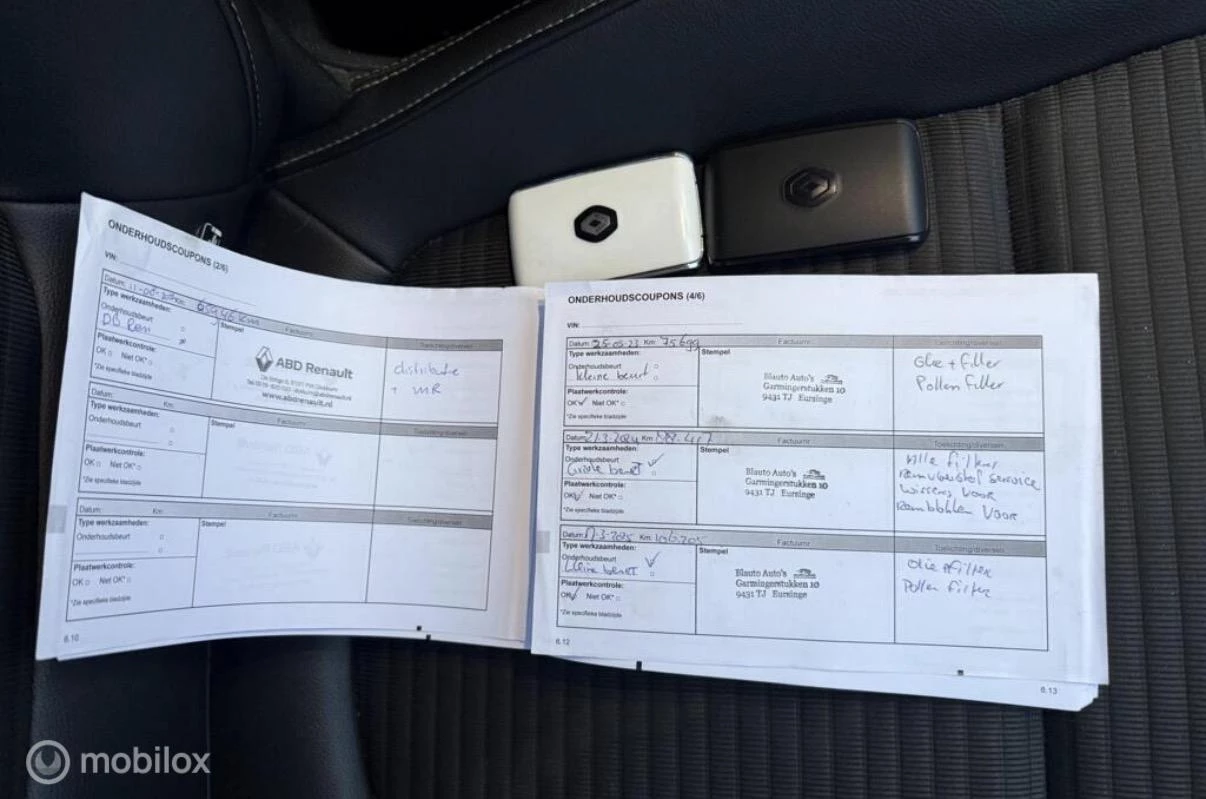 ONDERHOUDSCOUPONS (2/6)
VIN:
Datum: Km:
Type werkzaamheden: Stempel Factuurnr. Toelichting/diversen
Onderhoudsbeurt
Plaatwerkcontrole:
OK Niet OK*
*Zie specifieke bladzijde
ABD Renault
www.abdrenault.nl
distributie
+ MR
Datum: Km:
Type werkzaamheden: Stempel Factuurnr. Toelichting/diversen
Onderhoudsbeurt
Plaatwerkcontrole:
OK Niet OK*
*Zie specifieke bladzijde
Datum: Km: Factuurnr. Toelichting/diversen
Type werkzaamheden: Stempel
Onderhoudsbeurt
Plaatwerkcontrole:
OK Niet OK*
*Zie specifieke bladzijde
6.10
ONDERHOUDSCOUPONS (4/6)
VIN:
Datum: 25-05-23 Km: 75699 Factuurnr. Toelichting/diversen
Type werkzaamheden: Stempel
Onderhoudsbeurt
kleine beurt
Plaatwerkcontrole:
OK Niet OK*
*Zie specifieke bladzijde
Blauto Auto's
Garmingerstukken 10
9431 TJ Eursinge
Olie + filter
Pollen filter
Datum: 21-3-2024 Km: Factuurnr. Toelichting/diversen
Type werkzaamheden: Stempel
Onderhoudsbeurt
Grote beurt
Plaatwerkcontrole:
OK Niet OK*
*Zie specifieke bladzijde
Blauto Auto's
Garmingerstukken 10
9431 TJ Eursinge
Alle filters
Remvloeistof service
wissers voor
Remblokken voor
Datum: Km: 106.205 Factuurnr. Toelichting/diversen
Type werkzaamheden: Stempel
Onderhoudsbeurt
kleine beurt
Plaatwerkcontrole:
OK Niet OK*
*Zie specifieke bladzijde
Blauto Auto's
Garmingerstukken 10
9431 TJ Eursinge
olie + filter
Pollen filter
6.12
6.13
mobilox